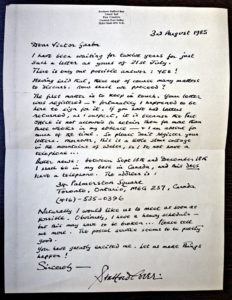 3rd August 1985
Dear Victor
I have been waiting for twelve years for just
such a letter as yours of 21st July.
There is only one possible answer: YES!
Having said that, there are of course many matters
to discuss. How shall we proceed?
The first matter is to keep in touch. Your letter
was registered - + fortunately I happened to be
here to sign for it. If you have had letters
returned, as I suspect, it is because the
Office is not allowed to retain them for more than
three weeks in my absence — + I am absent for
much of the time. So please don't register your
letters. Moreover, this is a little stone cottage
in the mountains of Wales, so I do not have a
telephone...
Better news: between Sept 18th and December 18th
I shall be in my base in Canada, and this does
have a telephone. The address is:
34 Palmerston Square
Toronto, Ontario, M6G 2S7, Canada
(416)-535-0396
Naturally I would like us to meet as soon as
possible. Obviously, I have a heavy schedule —
but this may have to be broken... Please call
me or. The postal service seems to be pretty
good.
You have greatly excited me. Let us make things
happen!
Sincerely
Stafford Beer